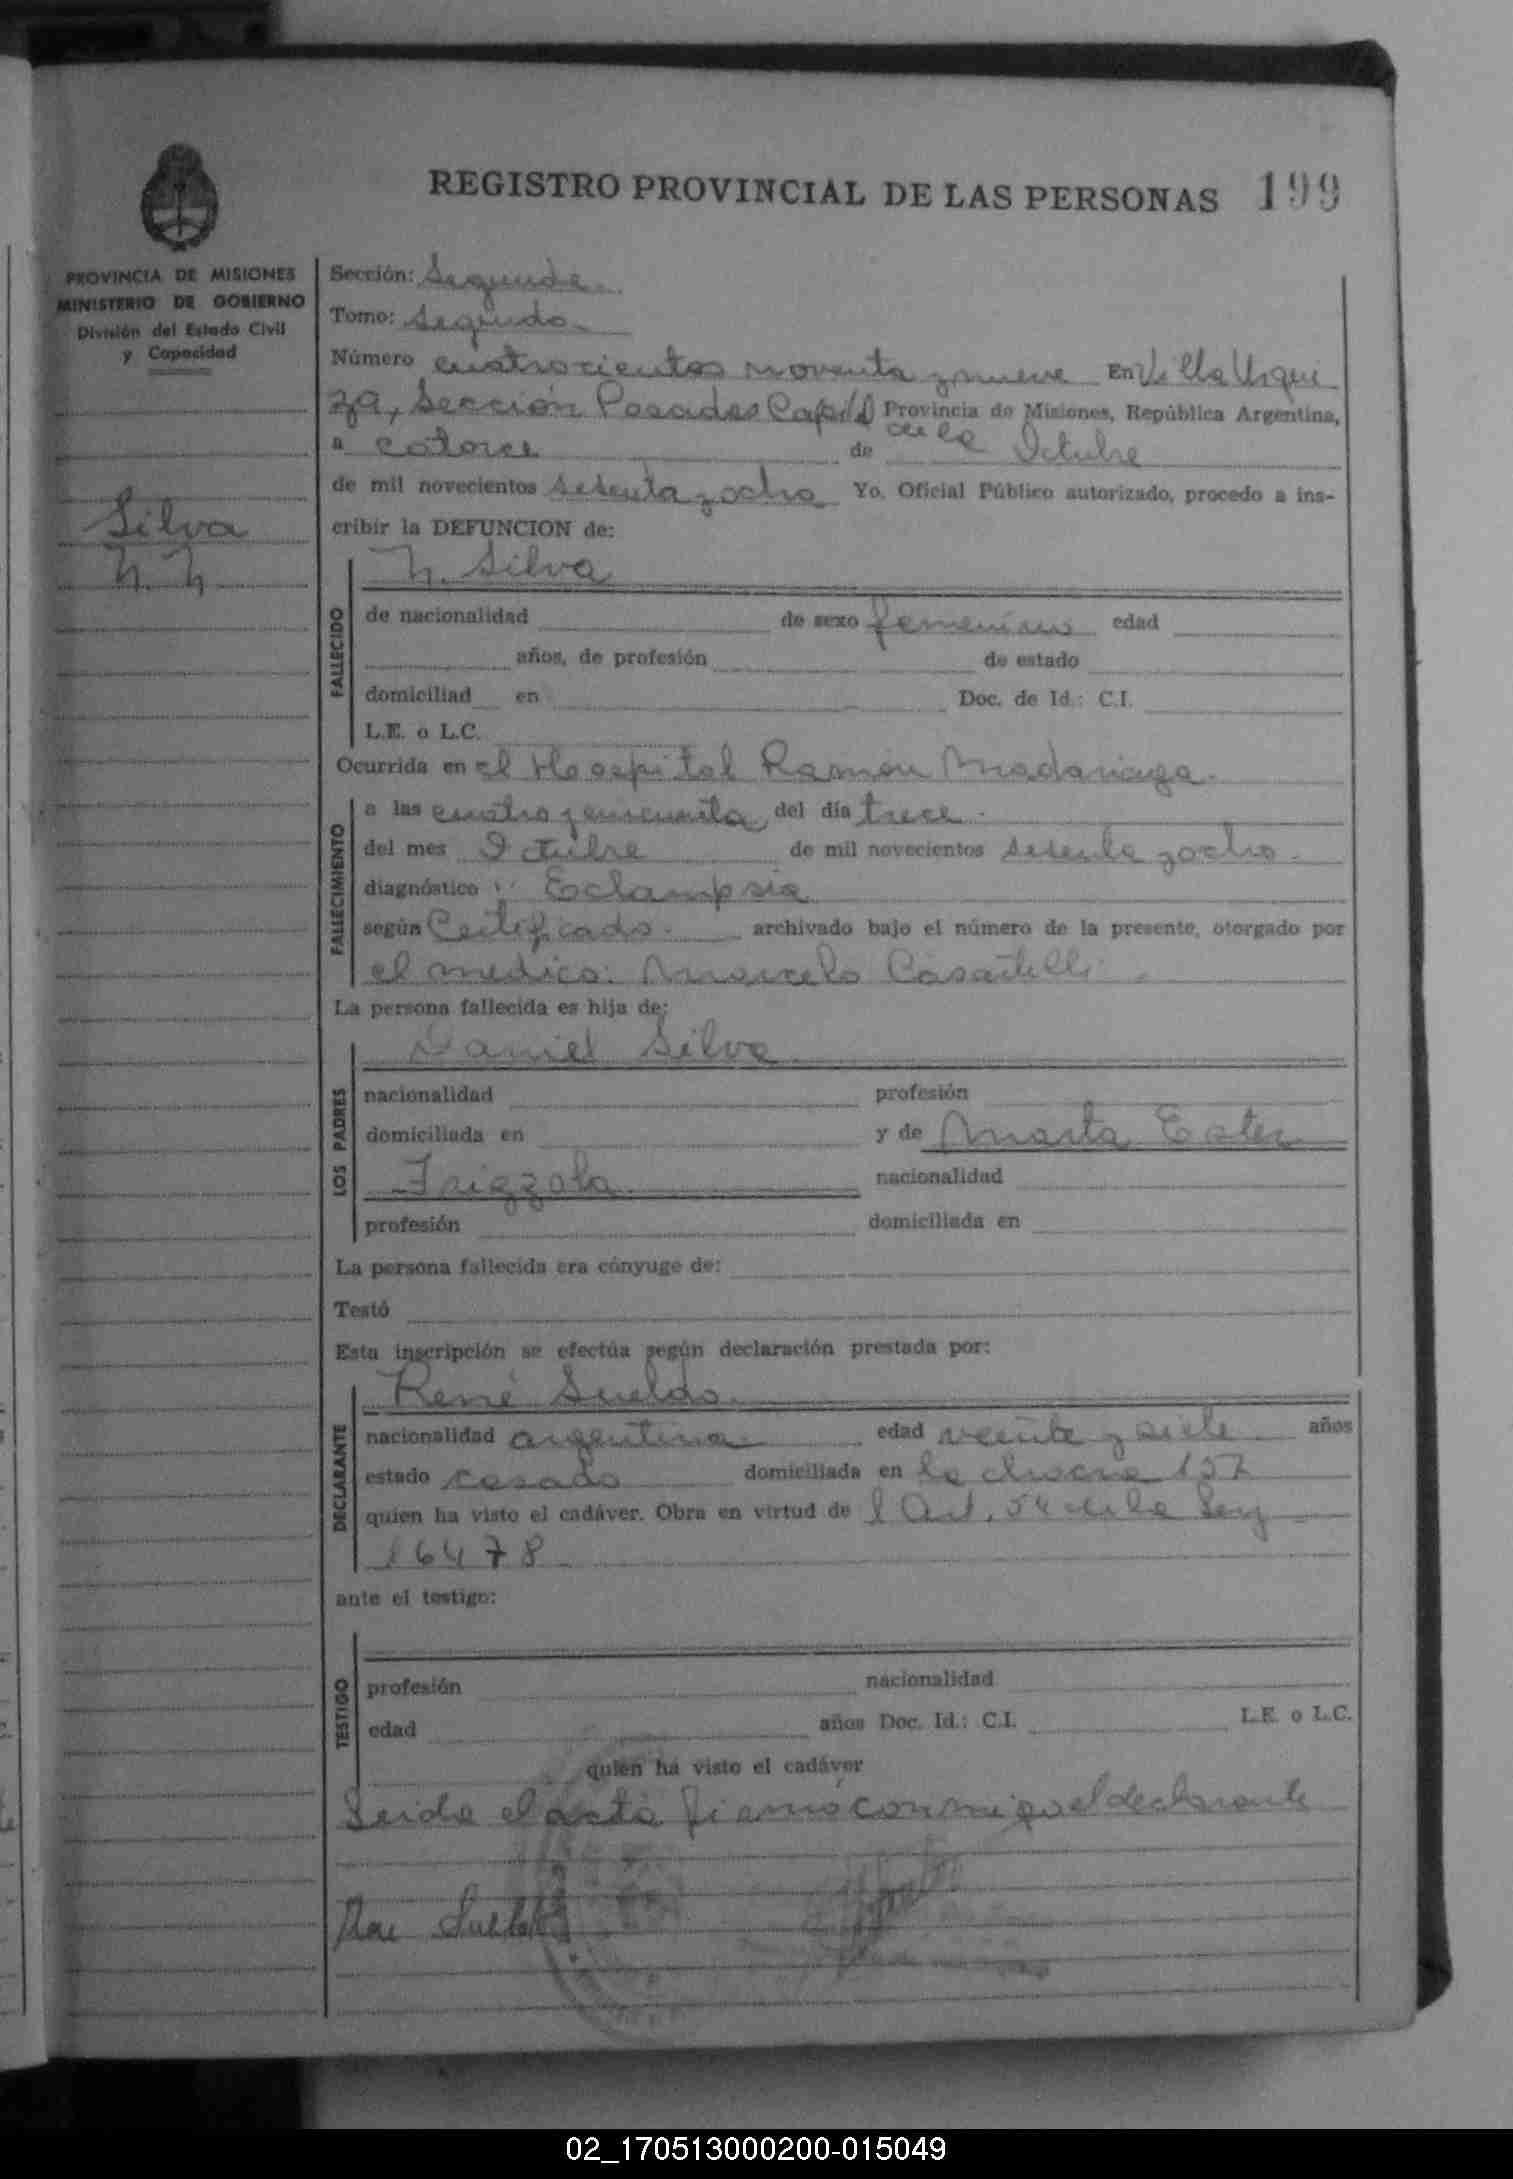 REGISTRO PROVINCIAL DE LAS PERSONAS 199
PROVINCIA DE MISIONES
MINISTERIO DE GOBIERNO
División del Estado Civil
y Capacidad
Silva
N. N.
Sección: Segunda.
Tomo: Segundo.
Número cuatrocientos noventa y nueve En Villa Urqui
za, Sección Posadas Capital Provincia de Misiones, República Argentina,
a catorce de Octubre
de mil novecientos setenta y ocho Yo, Oficial Público autorizado, procedo a ins-
cribir la DEFUNCION de:
N. Silva
FALLECIDO
de nacionalidad de sexo femenino edad
años, de profesión de estado
domiciliad en Doc. de Id.: C.I.
L.E. o L.C.
Ocurrida en el Hospital Ramón Madariaga.
FALLECIMIENTO
a las cuatro y cincuenta del día trece.
del mes Octubre de mil novecientos setenta y ocho.
diagnóstico: Eclampsia
según Certificado. archivado bajo el número de la presente, otorgado por
el médico: Marcelo
La persona fallecida es hija de:
LOS PADRES
Daniel Silva
nacionalidad profesión
domiciliada en y de Marta Ester
Frizzola
nacionalidad
profesión domiciliada en
La persona fallecida era cónyuge de:
Testó
Esta inscripción se efectúa según declaración prestada por:
DECLARANTE
René Sueldo.
nacionalidad argentina edad veinte y siete años
estado casado domiciliada en la chacra 157
quien ha visto el cadáver. Obra en virtud de l Art. 54 de la Ley
16478
ante el testigo:
TESTIGO
profesión nacionalidad
edad años Doc. Id.: C.I. L.E. o L.C.
quien ha visto el cadáver
Leida el acta firma conmigo el declarante
02_170513000200-015049